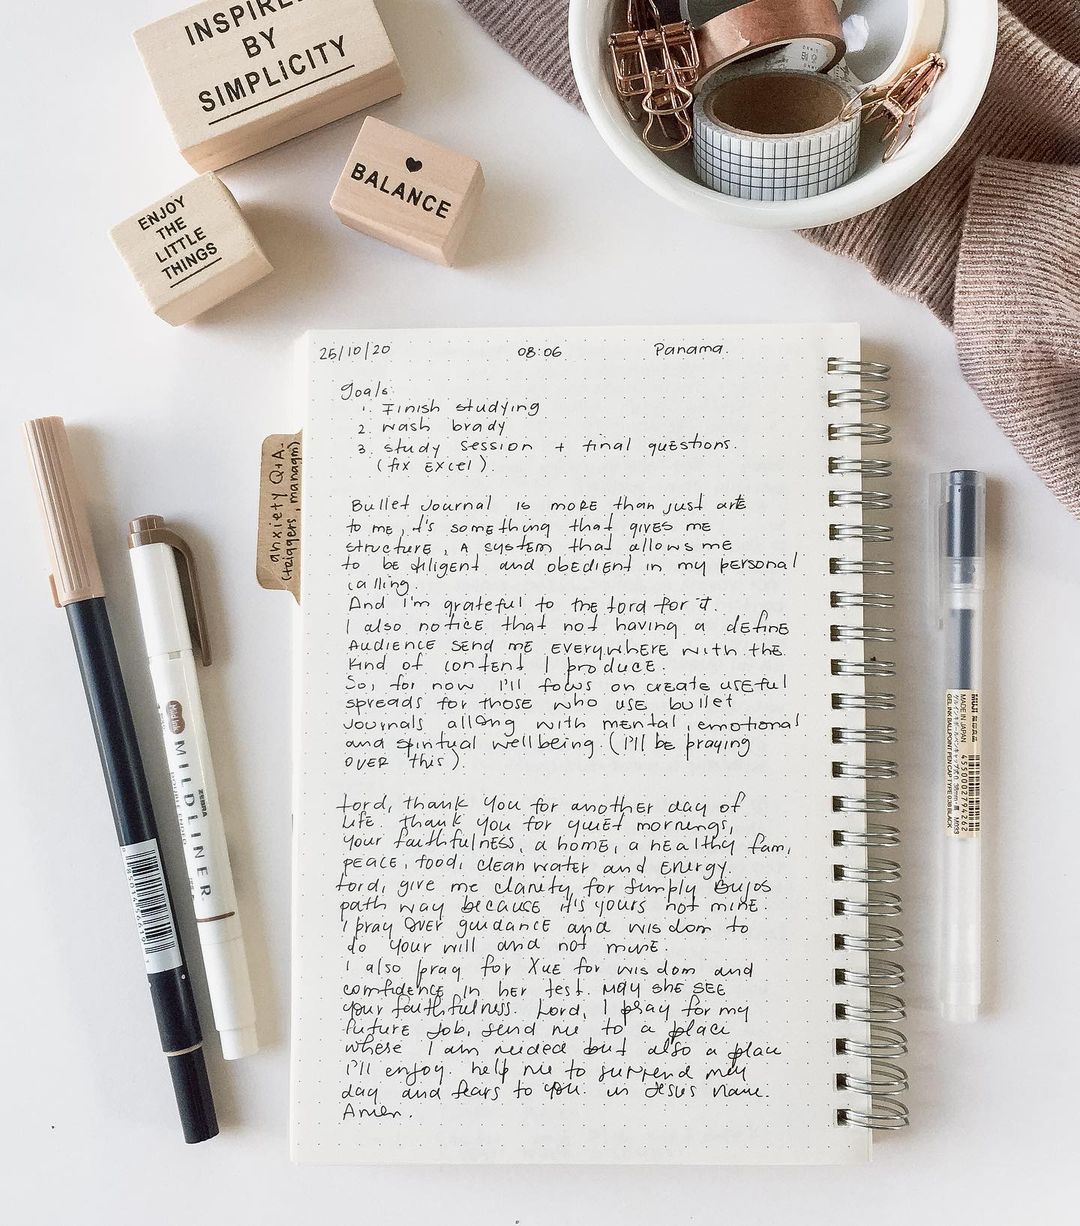 INSPIRED
BY
SIMPLICITY
BALANCE
ENJOY
THE
LITTLE
THINGS
25/10/20 08:06 Panama.
goals.
1. Finish studying
2. wash brady
3. study session + final questions.
(fix Excel).
anxiety Q+A.
(triggers, managm)
Bullet Journal is more than just art
to me, it's something that gives me
structure, a system that allows me
to be diligent and obedient in my personal
calling.
And I'm grateful to the Lord for it.
I also notice that not having a define
Audience send me everywhere with the
kind of content I produce.
So, for now I'll focus on create useful
spreads for those who use bullet
journals allong with mental, emotional
and spiritual wellbeing. (I'll be praying
over this).
Lord, thank you for another day of
life. thank you for quiet mornings,
your faithfulness, a home, a healthy fam,
peace, food, clean water and energy.
Lord, give me clarity, for Simply Bujos
path way because it's yours not mine.
I pray over guidance and wisdom to
do your will and not mine.
I also pray for Xue for wisdom and
confidence in her test. May she see
your faithfulness. Lord, I pray for my
future job, send me to a place
where I am needed but also a place
I'll enjoy. help me to surrend my
day and fears to you. in Jesus name.
Amen.
ZEBRA
MILDLINER
MUJI 無印良品
MADE IN JAPAN
4550002794262
GEL INK BALLPOINT PEN CAP TYPE 0.38 BLACK